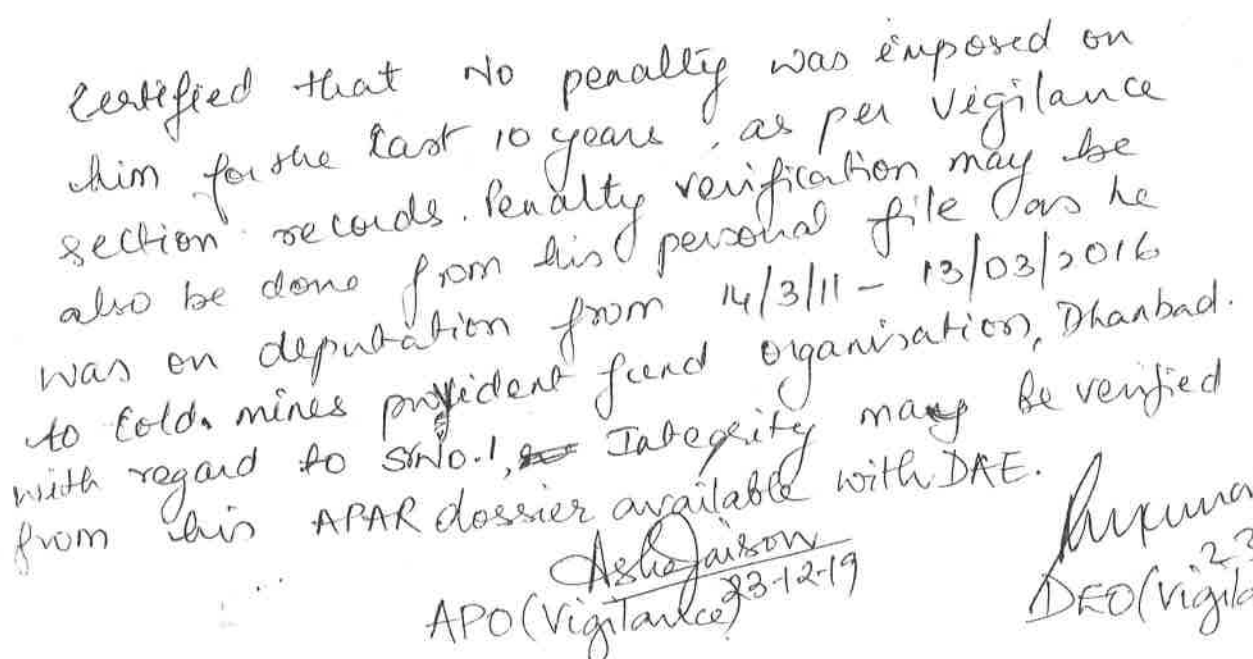 Certified that No penalty was imposed on
him for the last 10 years, as per Vigilance
section records. Penalty verification may be
also be done from his personal file as he
was on deputation from 14/3/11 - 13/03/2016
to Cold. mines provident fund organisation, Dhanbad.
with regard to SrNo.1, Integrity may be verified
from his APAR dossier available with DAE.
Asha Jaison
23-12-19
APO (Vigilance)
23
DEO (Vigila